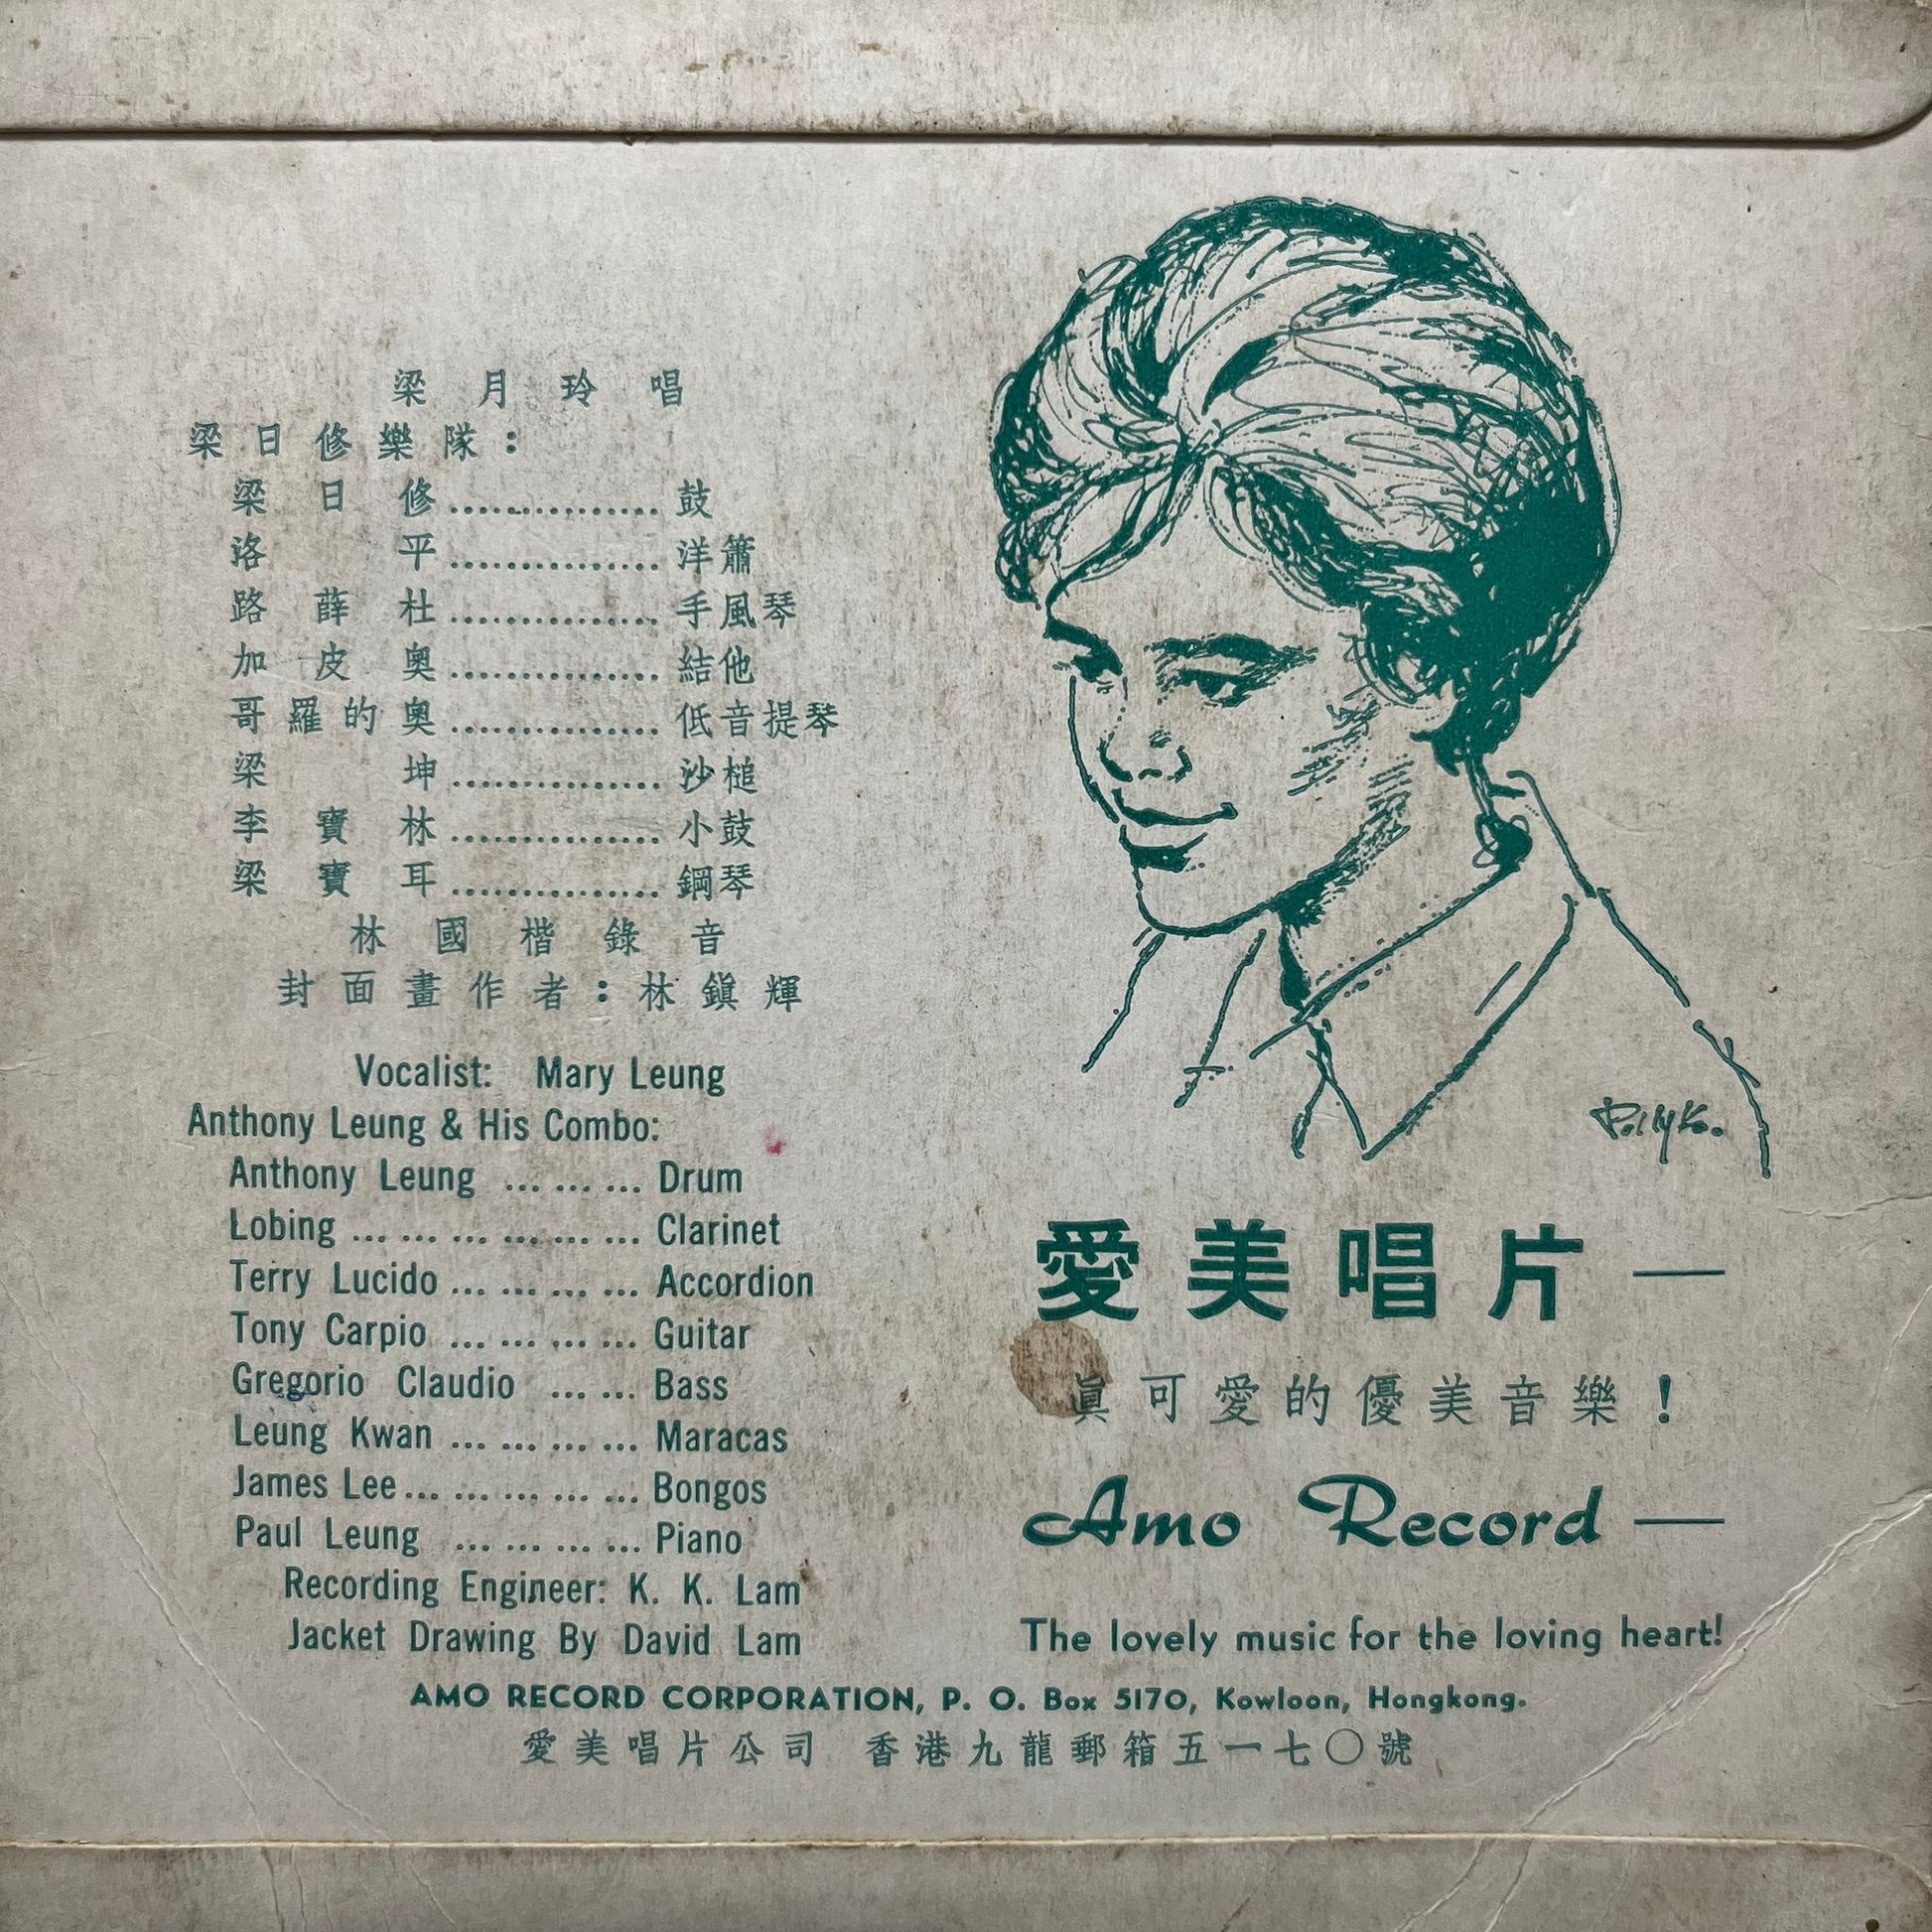 梁月玲唱
梁日修樂隊：
梁日修...............鼓
洛平...............洋簫
路薛杜...............手風琴
加皮奧...............結他
哥羅的奧...............低音提琴
梁坤...............沙槌
李寶林...............小鼓
梁寶耳...............鋼琴
林國楷錄音
封面畫作者：林鎭輝
Vocalist: Mary Leung
Anthony Leung & His Combo:
Anthony Leung ... ... ... Drum
Lobing ... ... ... ... ... ... Clarinet
Terry Lucido ... ... ... ... Accordion
Tony Carpio ... ... ... ... Guitar
Gregorio Claudio ... ... Bass
Leung Kwan ... ... ... ... Maracas
James Lee ... ... ... ... ... Bongos
Paul Leung ... ... ... ... Piano
Recording Engineer: K. K. Lam
Jacket Drawing By David Lam
Polly Ko.
愛美唱片—
眞可愛的優美音樂！
Amo Record —
The lovely music for the loving heart!
AMO RECORD CORPORATION, P. O. Box 5170, Kowloon, Hongkong.
愛美唱片公司 香港九龍郵箱五一七〇號